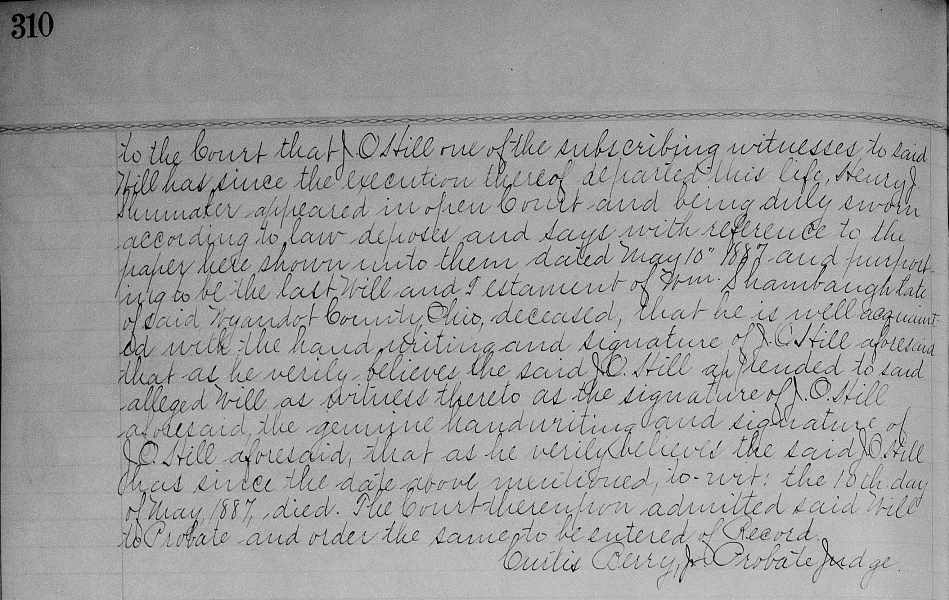 310
to the Court that J. O Hill one of the subscribing witnesses to said
Will has since the execution thereof departed this life, Henry J
Shumaker appeared in open Court and being duly sworn
according to law deposes and says with reference to the
paper here shown unto them dated May 10" 1887 and purport-
ing to be the last Will and Testament of Wm. Shambaugh late
of said Wyandot County, Ohio, deceased, that he is well acquaint-
ed with the hand writing and signature of J. O. Hill aforesaid
that as he verily believes the said J. O. Hill appended to said
alleged Will as witness thereto as the signature of J. O. Hill
aforesaid, the genuine handwriting and signature of
J. O. Hill aforesaid, that as he verily believes the said J. O Hill
has since the date above mentioned, to-wit: the 10th day
of May, 1887, died. The Court thereupon admitted said Will
to Probate and order the same to be entered of Record.
Curtis Berry, Jr Probate Judge.